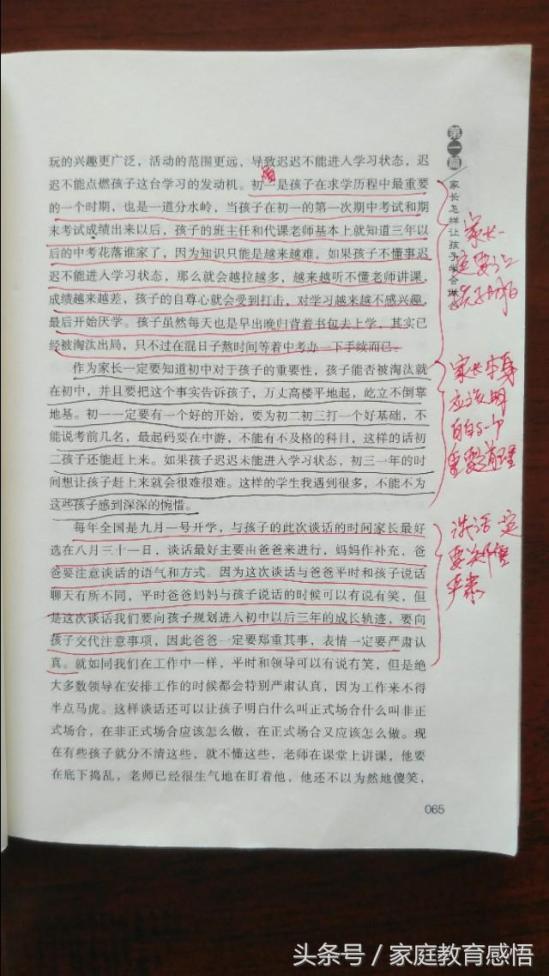 玩的兴趣更广泛，活动的范围更远，导致迟迟不能进入学习状态，迟
迟不能点燃孩子这台学习的发动机。初一是孩子在求学历程中最重要
的一个时期，也是一道分水岭，当孩子在初一的第一次期中考试和期
末考试成绩出来以后，孩子的班主任和代课老师基本上就知道三年以
后的中考花落谁家了，因为知识只能是越来越难。如果孩子不懂事迟
迟不能进入学习状态，那么就会越拉越多，越来越听不懂老师讲课，
成绩越来越差，孩子的自尊心就会受到打击，对学习越来越不感兴趣，
最后开始厌学。孩子虽然每天也是早出晚归背着书包去上学，其实已
经被淘汰出局，只不过在混日子熬时间等着中考办一下手续而已。
作为家长一定要知道初中对于孩子的重要性，孩子能否被淘汰就
在初中，并且要把这个事实告诉孩子，万丈高楼平地起，屹立不倒靠
地基。初一一定要有一个好的开始，要为初二初三打一个好基础，不
能说考前几名，最起码要在中游，不能有不及格的科目，这样的话初
二孩子还能赶上来。如果孩子迟迟未能进入学习状态，初三一年的时
间想让孩子赶上来就会很难很难。这样的学生我遇到很多，不能不为
这些孩子感到深深的惋惜。
每年全国是九月一号开学，与孩子的此次谈话的时间家长最好
选在八月三十一日，谈话最好主要由爸爸来进行，妈妈作补充，爸
爸要注意谈话的语气和方式。因为这次谈话与爸爸平时和孩子说话
聊天有所不同，平时爸爸妈妈与孩子说话的时候可以有说有笑，但
是这次谈话我们要向孩子规划进入初中以后三年的成长轨迹，要向
孩子交代注意事项，因此爸爸一定要郑重其事，表情一定要严肃认
真。就如同我们在工作中一样，平时和领导可以有说有笑，但是绝
大多数领导在安排工作的时候都会特别严肃认真，因为工作来不得
半点马虎。这样谈话还可以让孩子明白什么叫正式场合什么叫非正
式场合，在非正式场合应该怎么做，在正式场合又应该怎么做。现
在有些孩子就分不清这些，就不懂这些，老师在课堂上讲课，他要
在底下捣乱，老师已经很生气地在盯着他，他还不以为然地傻笑，
065
第一篇
家长怎样让孩子学会
家长一
定要让
孩子明白
家长本身
应该明
白
重要
谈话一定
要
严肃
头条号 / 家庭教育感悟